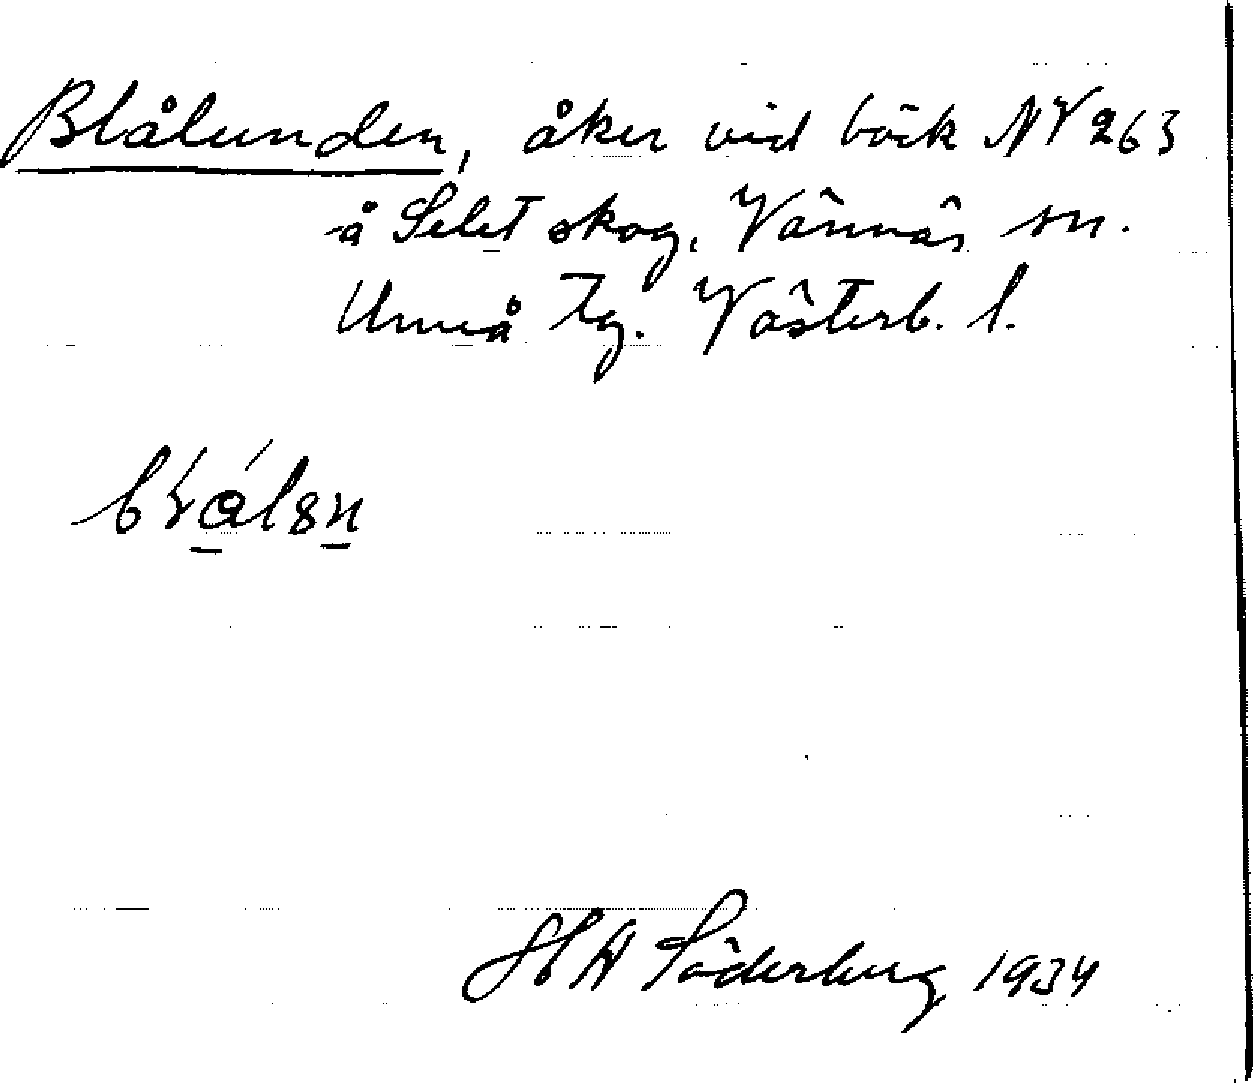 Blålunden, åker vid bäck NV 263
å Selet skog, Vännäs sn.
Umeå tg. Västerb. l.
H A Söderberg 1934